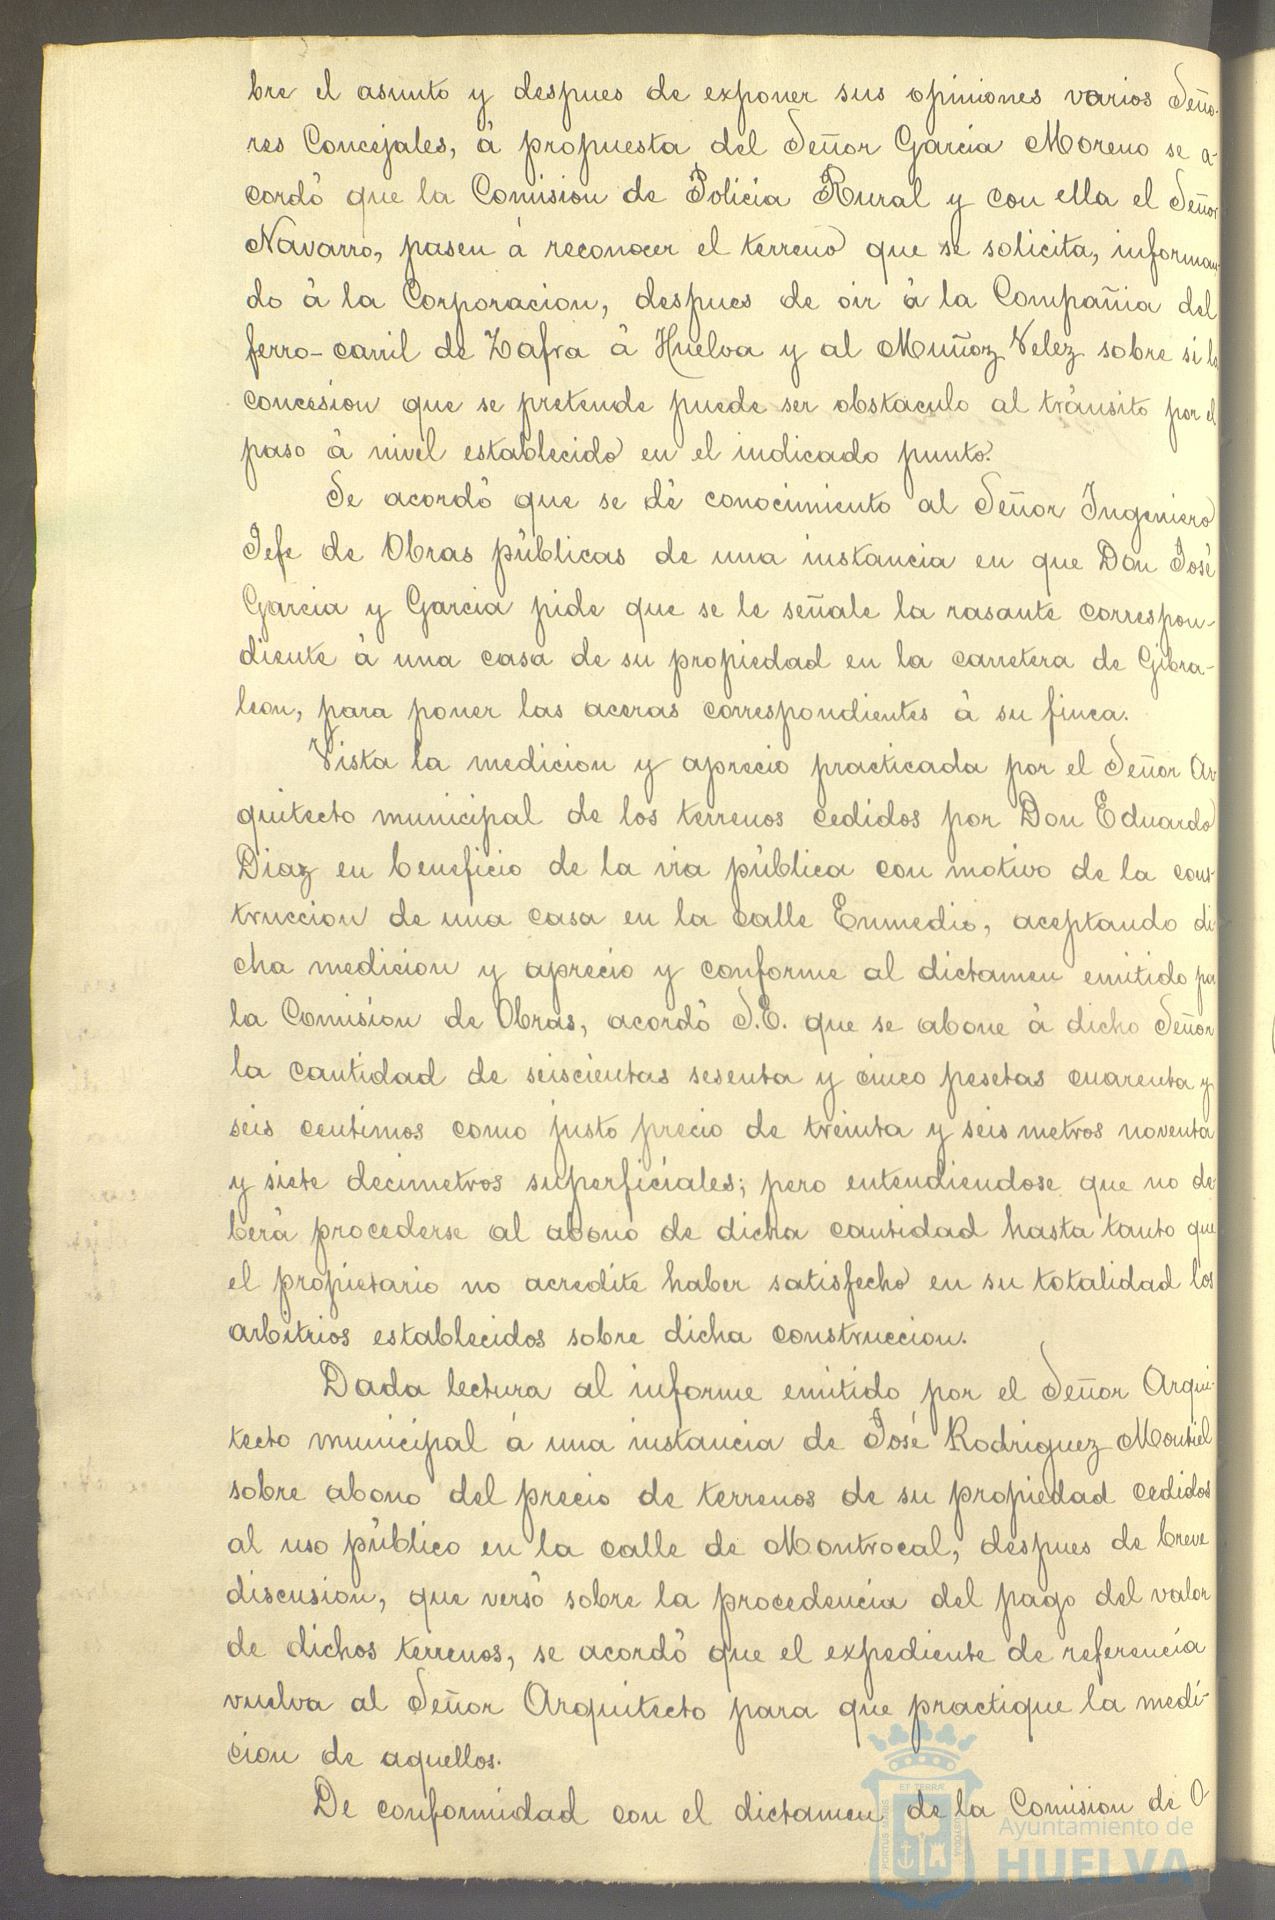 bre el asunto y despues de exponer sus opiniones varios Seño-
res Concejales, á propuesta del Señor Garcia Moreno se a-
cordó que la Comision de Policia Rural y con ella el Señor
Navarro, pasen á reconocer el terreno que se solicita, informan-
do á la Corporacion, despues de oir á la Compañia del
ferro-carril de Zafra á Huelva y al Muñoz Velez sobre si la
concesion que se pretende puede ser obstáculo al tránsito por el
paso á nivel establecido en el indicado punto.
Se acordó que se dé conocimiento al Señor Ingeniero
Jefe de Obras públicas de una instancia en que Don José
Garcia y Garcia pide que se le señale la rasante correspon-
diente á una casa de su propiedad en la carretera de Gibra-
leon, para poner las aceras correspondientes á su finca.
Vista la medicion y aprecio practicada por el Señor Ar
quitecto municipal de los terrenos cedidos por Don Eduardo
Diaz en beneficio de la via pública con motivo de la cons-
truccion de una casa en la calle Enmedio, aceptando di
cha medicion y aprecio y conforme al dictamen emitido por
la Comision de Obras, acordó S.E. que se abone á dicho Señor
la cantidad de seiscientas sesenta y cinco pesetas cuarenta y
seis centimos como justo precio de treinta y seis metros noventa
y siete decimetros superficiales; pero entendiendose que no de
berá procederse al abono de dicha cantidad hasta tanto que
el propietario no acredite haber satisfecho en su totalidad los
arbitrios establecidos sobre dicha construccion.
Dada lectura al informe emitido por el Señor Arqui-
tecto municipal á una instancia de José Rodriguez Montiel
sobre abono del precio de terrenos de su propiedad cedidos
al uso público en la calle de Montrocal, despues de breve
discusion, que versó sobre la procedencia del pago del valor
de dichos terrenos, se acordó que el expediente de referencia
vuelva al Señor Arquitecto para que practique la medi-
cion de aquellos.
De conformidad con el dictamen de la Comision de O
PORTUS MARIS ET TERRÆ CUSTODIA
Ayuntamiento de
HUELVA